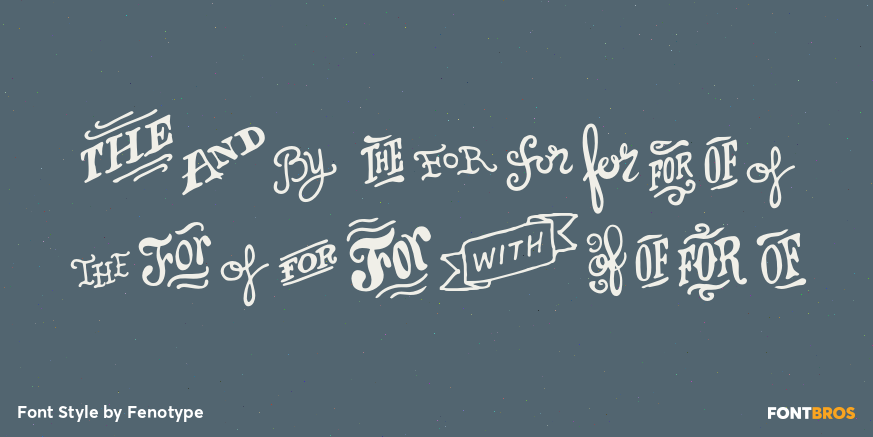 THE AND By THE FOR for for FOR OF of
THE For of FOR For WITH of OF FOR OF
Font Style by Fenotype
FONTBROS